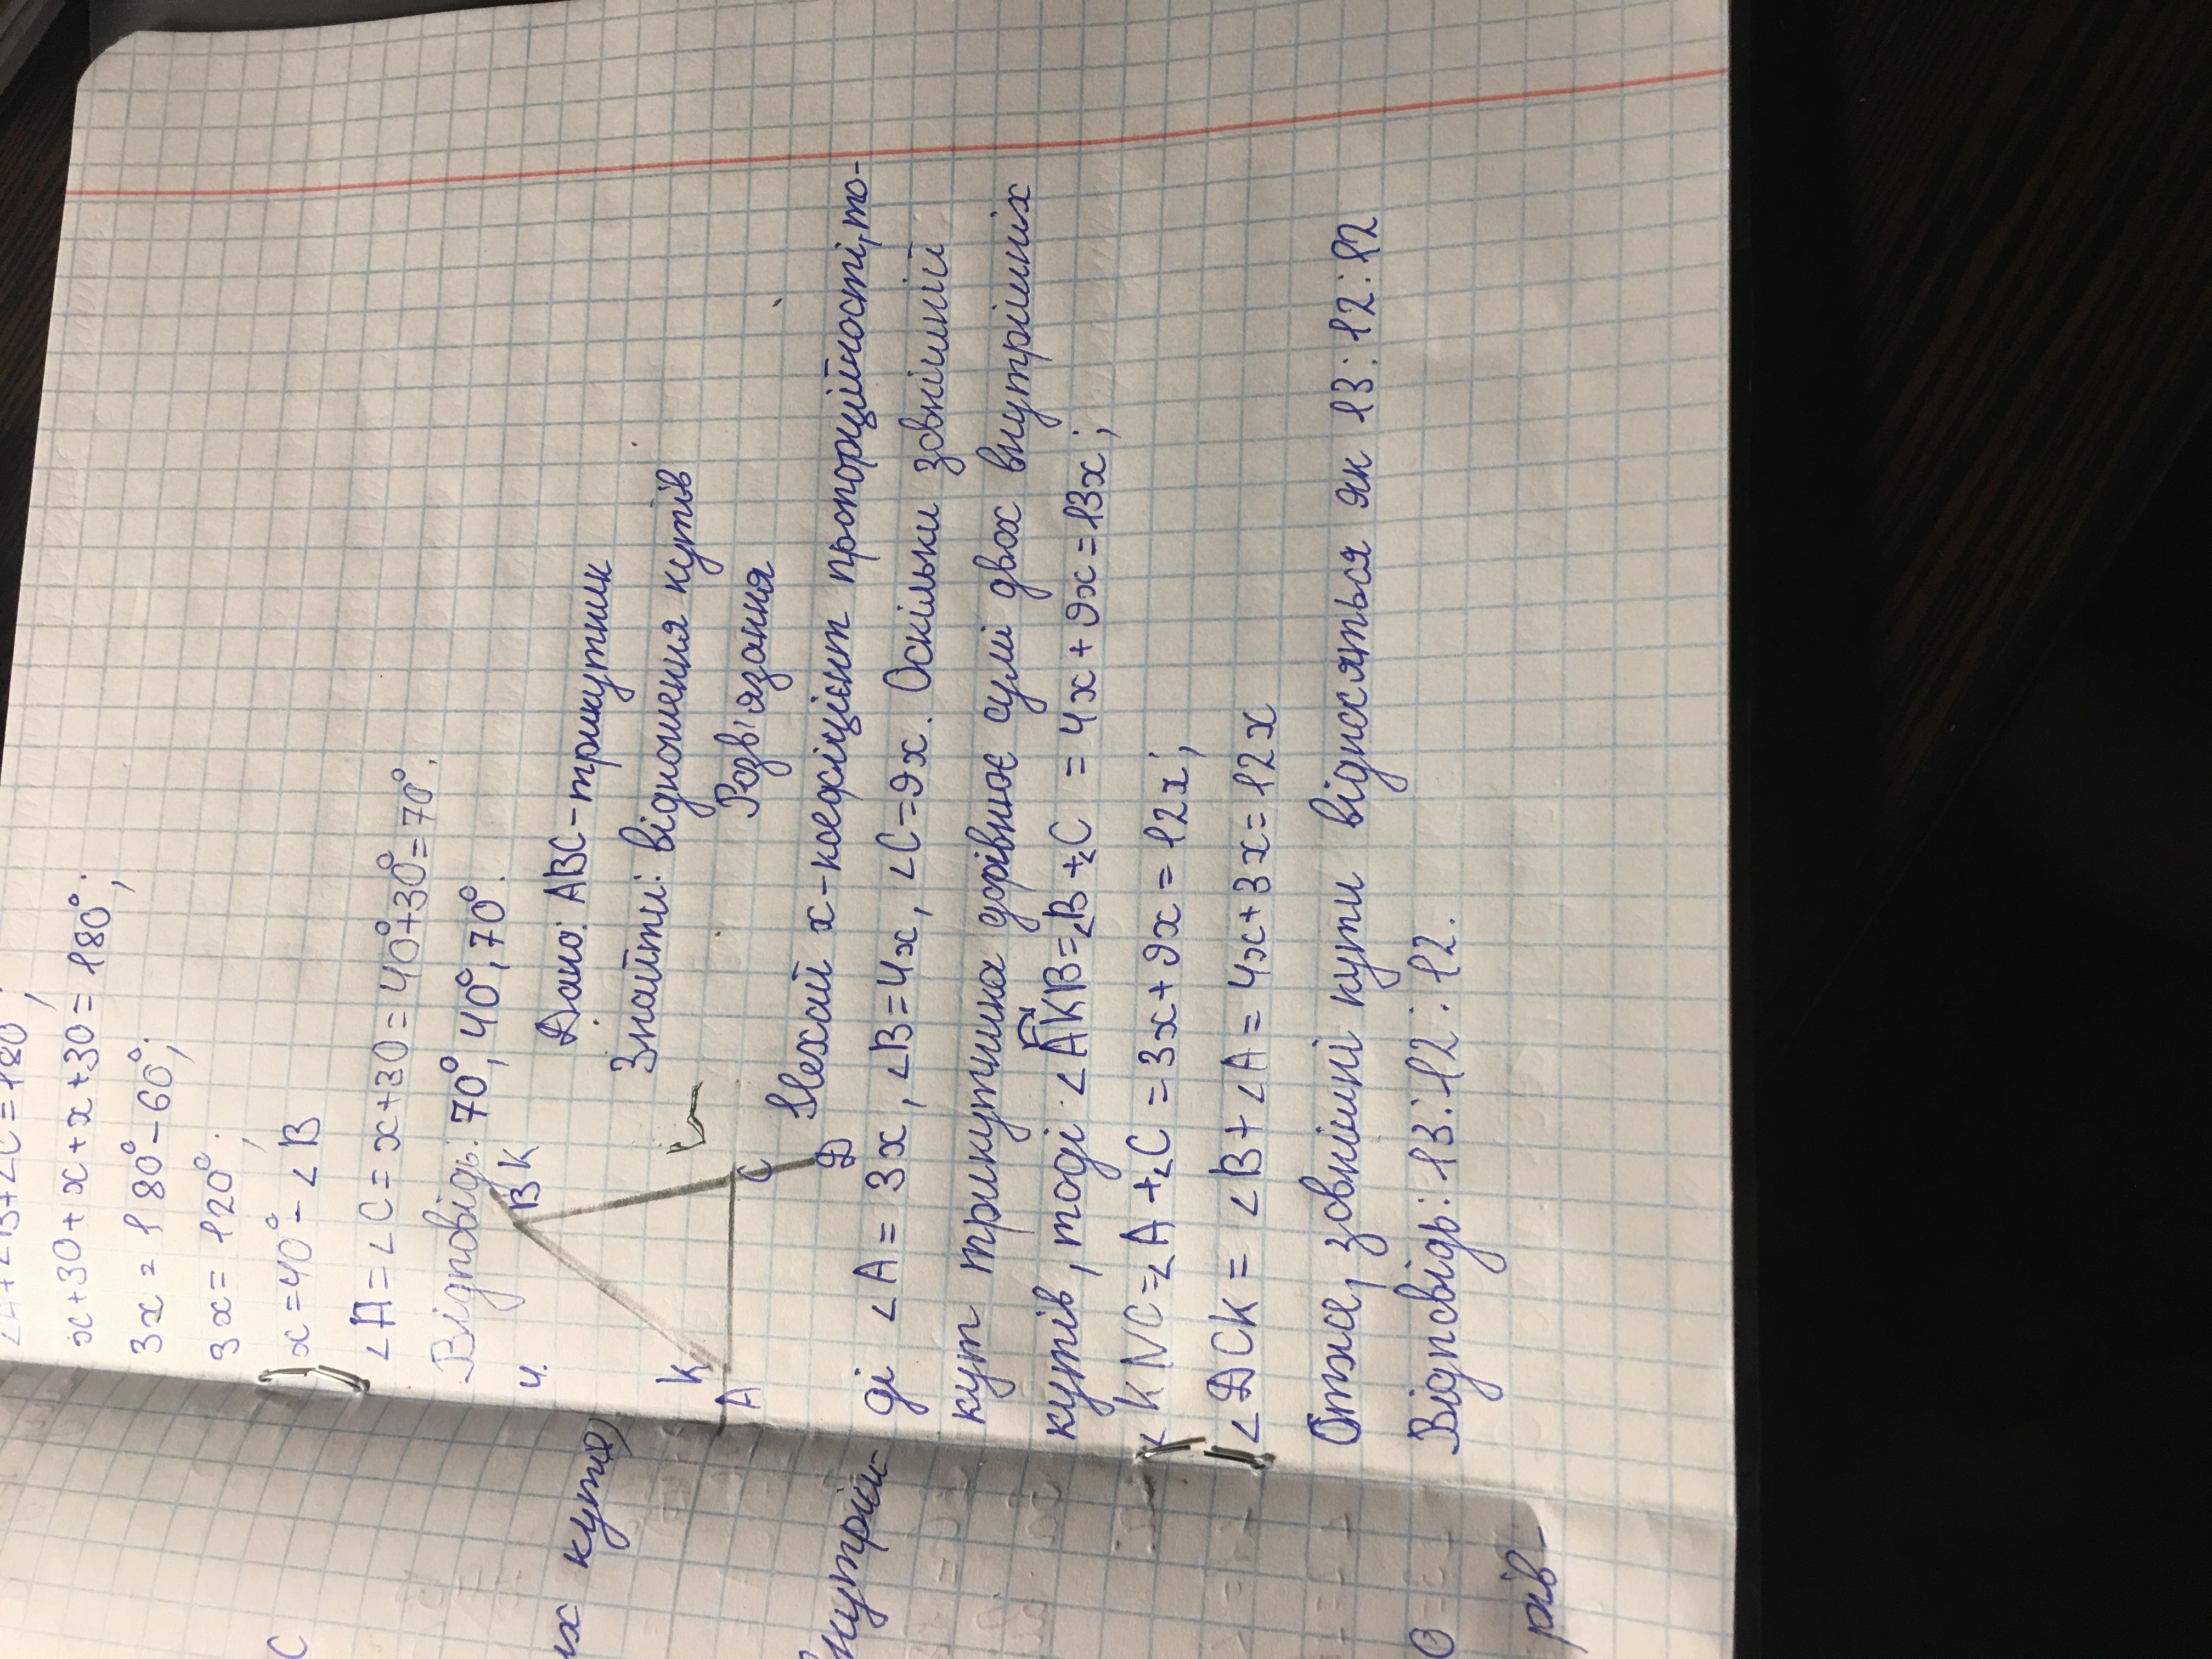 ∠A+∠B+∠C=180°;
x+30+x+x+30=180°;
3x=180°-60°;
3x=120°.
x=40°-∠B
∠A=∠C=x+30=40°+30°=70°.
Відповідь: 70°, 40°, 70°.
4.
B K
Дано: ABC-трикутник
Знайти: відношення кутів
K
A
C
Д
Розв'язання
Нехай x-коефіцієнт пропорційності, то-
ді ∠A=3x, ∠B=4x, ∠C=9x. Оскільки зовнішній
кут трикутника дорівнює сумі двох внутрішніх
кутів, тоді ∠AKB=∠B+∠C=4x+9x=13x;
∠KNC=∠A+∠C=3x+9x=12x;
∠ДCK=∠B+∠A=4x+3x=12x
Отже, зовнішні кути відносяться як 13:12:12
Відповідь: 13:12:12.
C
их кутів)
внутріш-
рів-